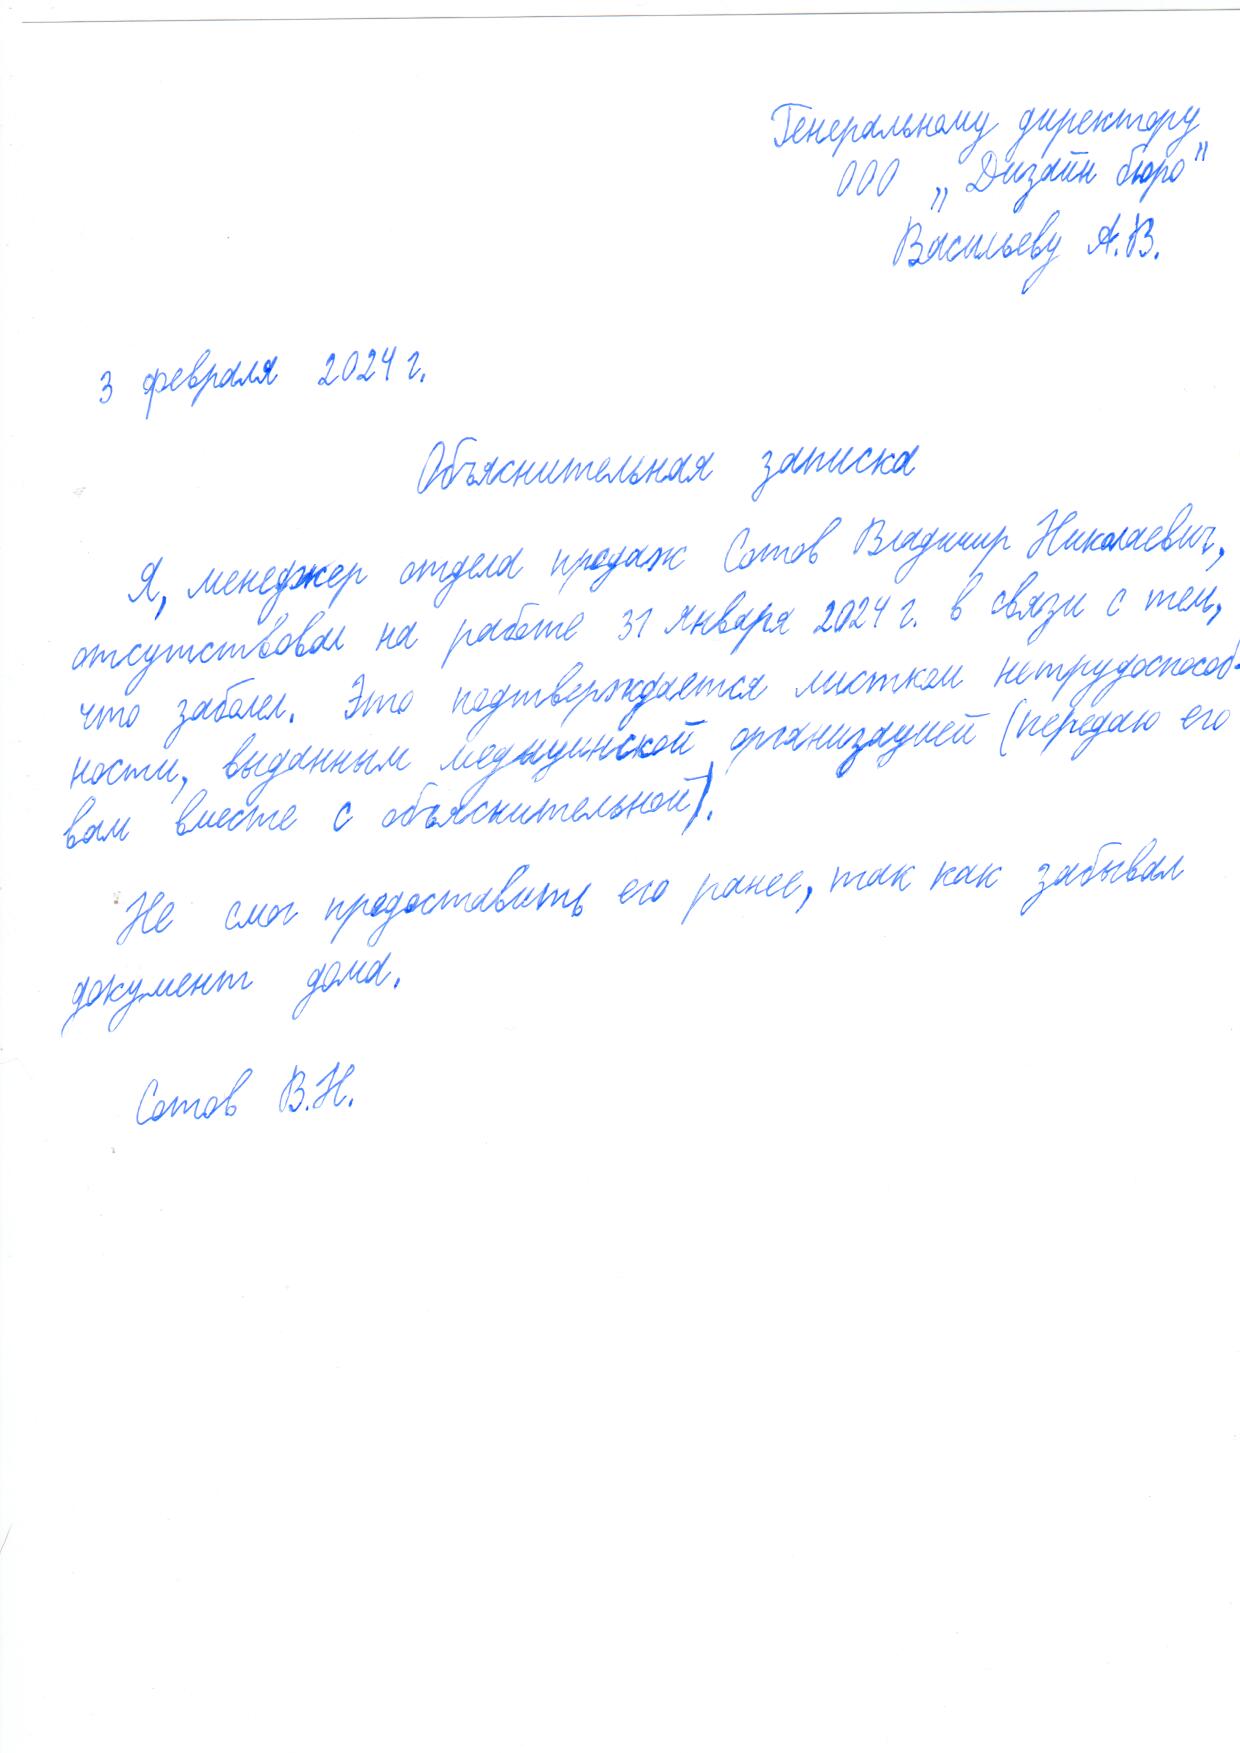 Генеральному директору
ООО „Дизайн бюро"
Васильеву А.В.
3 февраля 2024 г.
Объяснительная записка
Я, менеджер отдела продаж Сотов Владимир Николаевич,
отсутствовал на работе 31 января 2024 г. в связи с тем,
что заболел. Это подтверждается листком нетрудоспособ-
ности, выданным медицинской организацией (передаю его
вам вместе с объяснительной).
Не смог предоставить его ранее, так как забывал
документ дома.
Сотов В.Н.